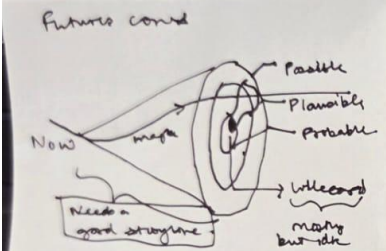 Futures cone
Possible
Plausible
Probable
Now
Wildcard
Needs a
good storyline